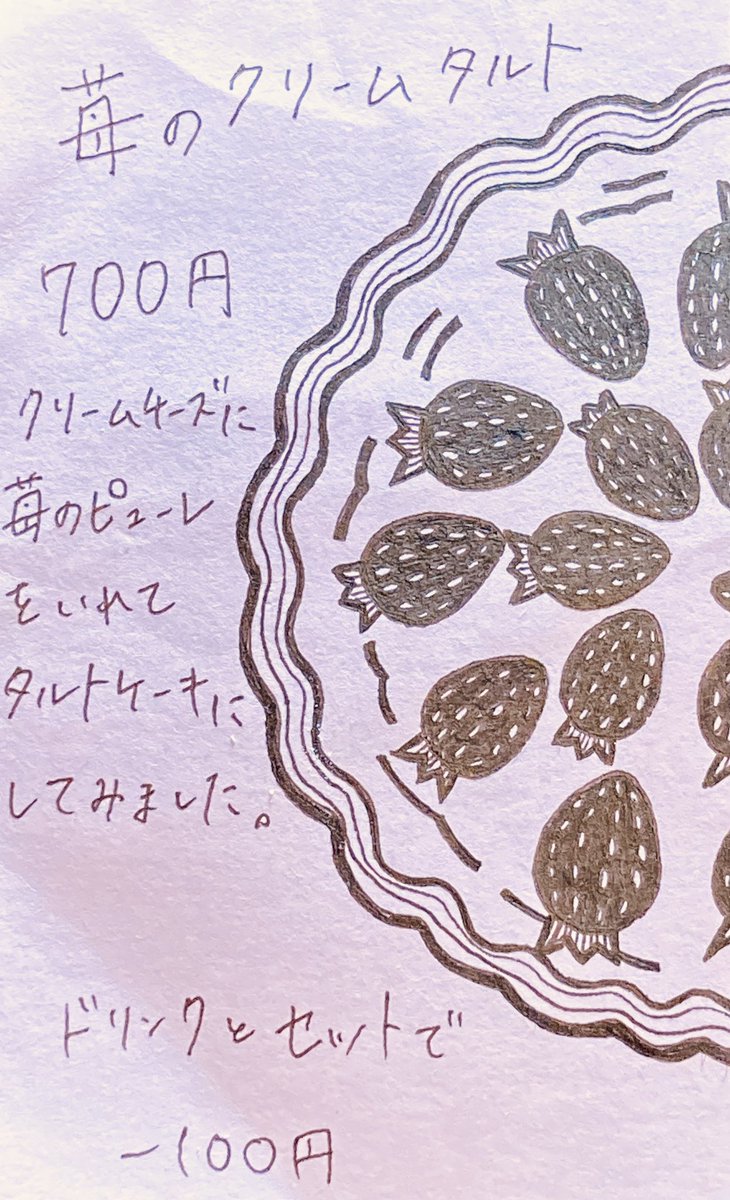 苺のクリームタルト
700円
クリームチーズに
苺のピューレ
をいれて
タルトケーキに
してみました。
ドリンクとセットで
-100円